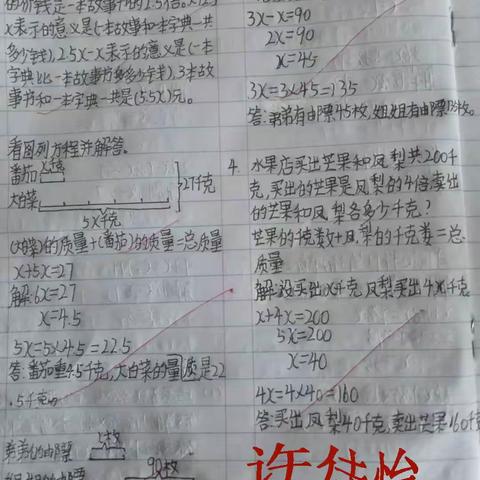 的价钱是一本故事书的2.5倍。x+2.5
x表示的意义是(一本故事和一本字典一共
多少钱),2.5x-x表示的意义是(一本
字典比一本故事书多多少钱),3本故
事书和一本字典一共是(5.5x)元。
看图列方程并解答。
番茄 x千克
大白菜
27千克
5x千克
(大白菜)的质量+(番茄)的质量=总质量
x+5x=27
解:6x=27
x=4.5
5x=5×4.5=22.5
答:番茄重4.5千克,大白菜的量质是22
.5千克。
弟弟的邮票 x枚
90枚
3x-x=90
2x=90
x=45
3x=3×45=135
答:弟弟有邮票45枚,姐姐有邮票135枚。
4. 水果店卖出芒果和凤梨共200千
克,卖出的芒果是凤梨的4倍,卖出
的芒果和凤梨各多少千克?
芒果的千克数+凤梨的千克数=总
质量
解:设卖出x千克,凤梨买出4x千克
x+4x=200
5x=200
x=40
4x=4×40=160
答:买出凤梨40千克,卖出芒果160千